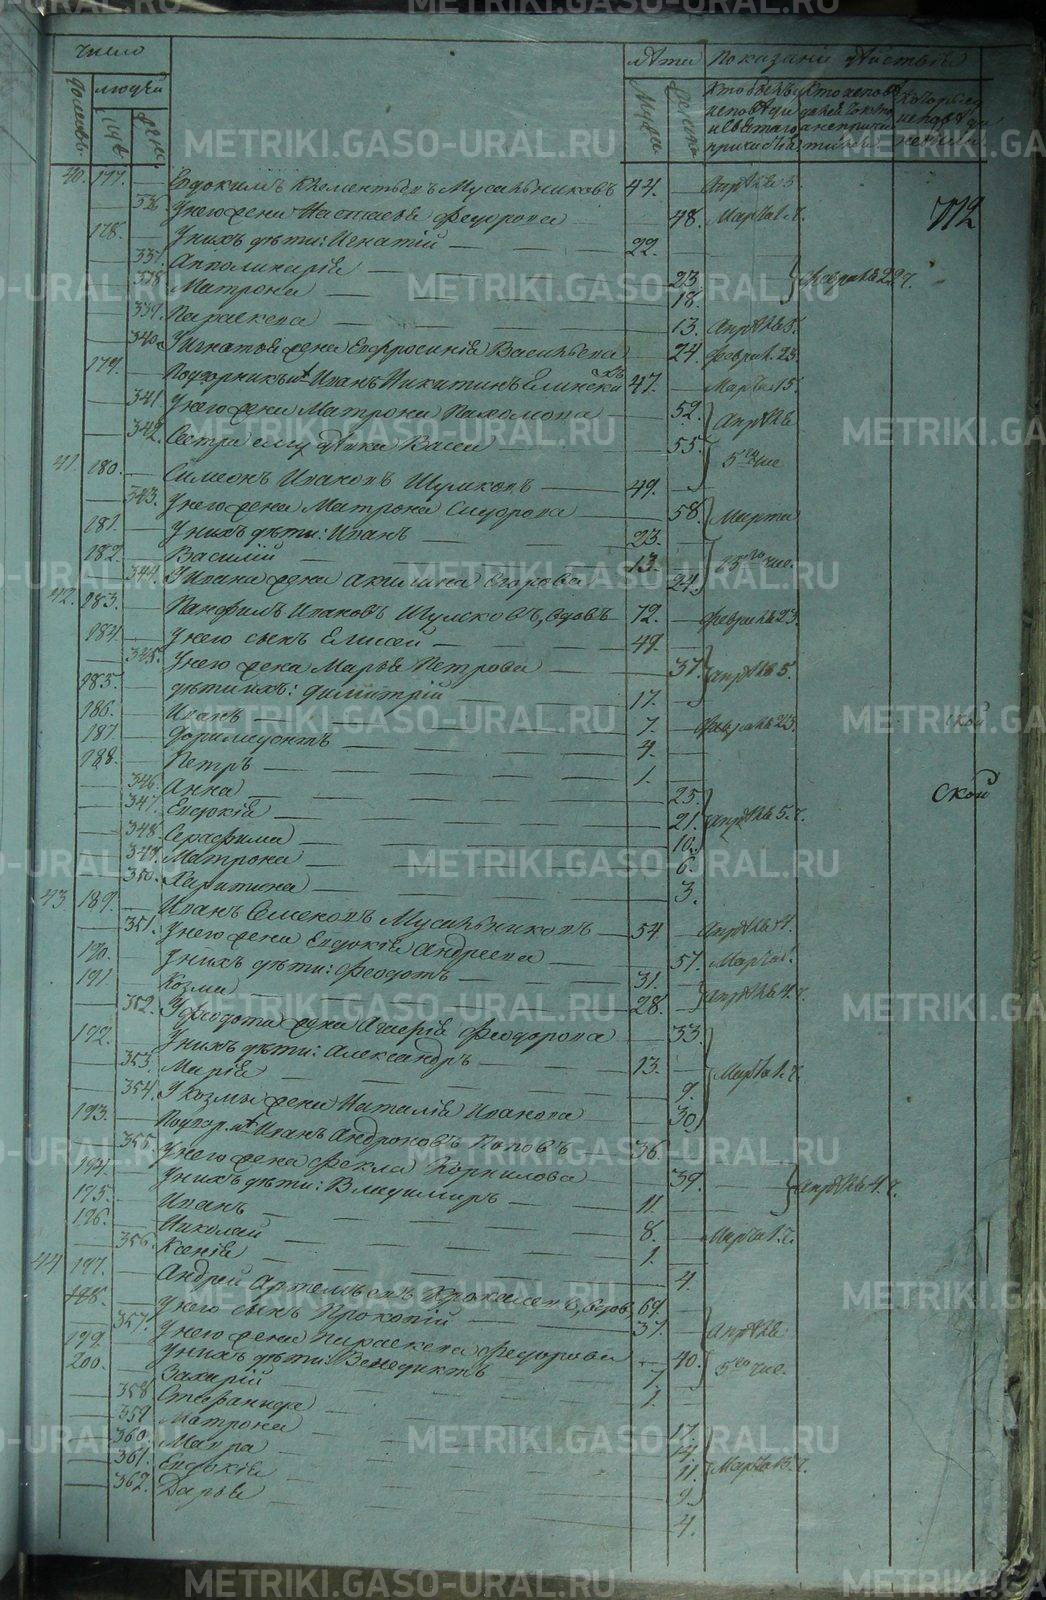 Число
лѣта
Показаніе дѣйства
домовъ
людей
муж.
жен.
40. 177. Евдокимъ Клементьевъ Мусальниковъ 44. Апрѣля 5.
336. У него жена Настасья Федорова 48. Марта 1. ч.
772
178. У нихъ дѣти: Игнатій 22.
337. Апполинарія 23
338. Матрона 18. Февраля 22 ч.
339. Параскева 13. Апрѣля 5.
340. У Игнатья жена Евфросинія Васильева 24. Феврал. 23.
179. Иванъ Никитинъ 47. Марта 15.
341. У него жена Матрона Пахомова 52. Апрѣля
342. Сестра ему дѣвка Васса 55. 5го чис.
41. 180. Симеонъ Ивановъ Шумковъ 49.
343. У него жена Матрона Сидорова 58. Марта
181. У нихъ дѣти: Иванъ 23.
182. Василій 13. 15го чис.
344. У Ивана жена Акилина Егорова 21.
42. 183. Панфилъ Ивановъ Шумковъ, вдовъ 72. Февраля 23.
184. У него сынъ Елисей 49.
345. У него жена Марья Петрова 37. Апрѣля 5.
185. Дѣти ихъ: Димитрій 17.
186. Иванъ 7. Февраля 23.
187. Доримедонтъ 4.
188. Петръ 1.
346. Анна 25. ской
347. Евдокія 21. Апрѣля 5. ч.
348. Серафима 10.
349. Матрона 6.
350. Харитина 3.
43 189. Иванъ Семеновъ Мусальниковъ 54 Апрѣля 4.
351. У него жена Евдокія Андреева 57. Марта 1.
190. У нихъ дѣти: Феодотъ 31.
191. Козма 28. Апрѣля 4. ч.
352. У Феодота жена Агаѳія Феодорова 33.
192. У нихъ дѣти: Александръ 13. Марта 1. ч.
353. Марія 9.
354. У Козмы жена Наталія Иванова 30
193. Иванъ Андроновъ Поповъ 36
355. У него жена Фекла Корнилова 39. Апрѣля 4. ч.
194. У нихъ дѣти: Владимиръ 11.
195. Иванъ 8. Марта 1. ч.
196. Николай 1.
356. Ксенія 4.
44 197. Андрей Артемьевъ вдовъ 69.
198. У него сынъ Прокопій 37. Апрѣля
357. У него жена Параскева Федорова 40. 5го чис.
199. У нихъ дѣти: Венедиктъ 7.
200. Захарій 1.
358 Стефанида 17.
359 Матрона 14.
360. Мавра 11. Марта 15. ч.
361. Евдокія 9.
362. Дарья 4.
METRIKI.GASO-URAL.RU